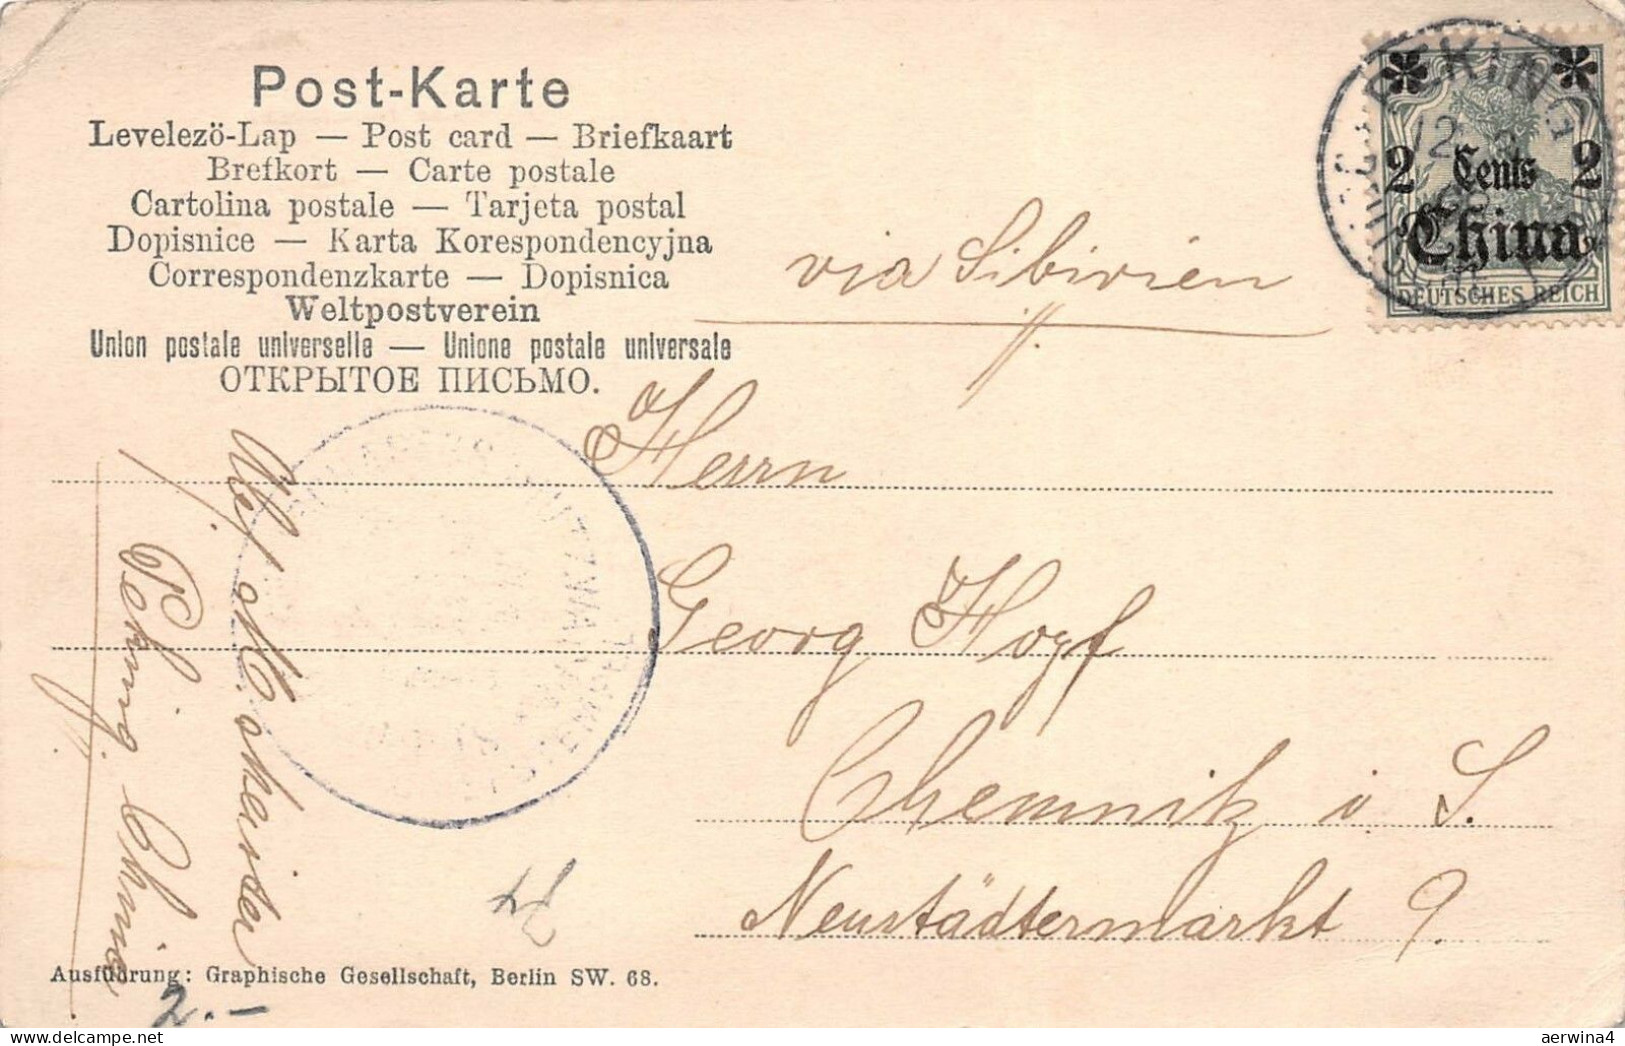 Post-Karte
Levelezö-Lap — Post card — Briefkaart
Brefkort — Carte postale
Cartolina postale — Tarjeta postal
Dopisnice — Karta Korespondencyjna
Correspondenzkarte — Dopisnica
Weltpostverein
Union postale universelle — Unione postale universale
ОТКРЫТОЕ ПИСЬМО.
PEKING
2 Cents 2
China
DEUTSCHES REICH
via Sibirien
Herrn
Georg Hopf
Chemnitz i S.
Neustädtermarkt 9.
Abs.
Peking China
Ausführung: Graphische Gesellschaft, Berlin SW. 68.
2.-
aerwina4